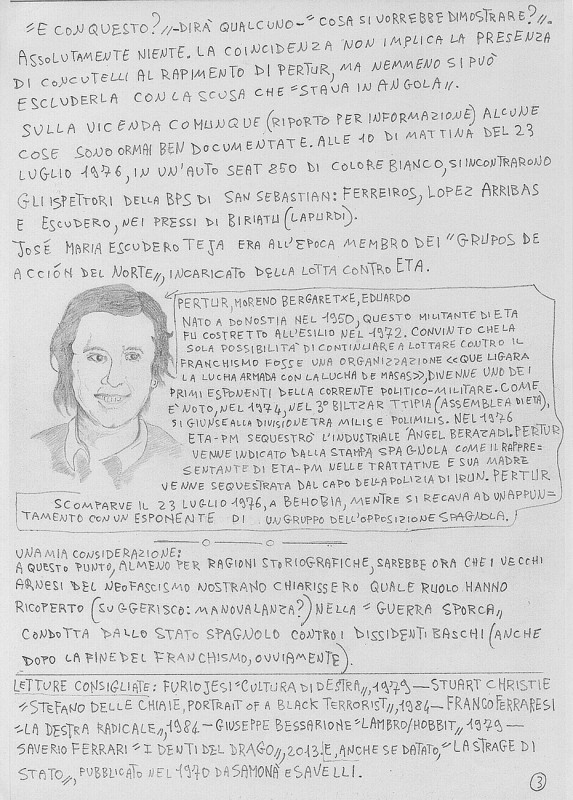 "E CON QUESTO?"-DIRÀ QUALCUNO-"COSA SI VORREBBE DIMOSTRARE?".
ASSOLUTAMENTE NIENTE. LA COINCIDENZA NON IMPLICA LA PRESENZA
DI CONCUTELLI AL RAPIMENTO DI PERTUR, MA NEMMENO SI PUÒ
ESCLUDERLA CON LA SCUSA CHE "STAVA IN ANGOLA".
SULLA VICENDA COMUNQUE (RIPORTO PER INFORMAZIONE) ALCUNE
COSE SONO ORMAI BEN DOCUMENTATE. ALLE 10 DI MATTINA DEL 23
LUGLIO 1976, IN UN'AUTO SEAT 850 DI COLORE BIANCO, SI INCONTRARONO
GLI ISPETTORI DELLA BPS DI SAN SEBASTIAN: FERREIROS, LOPEZ ARRIBAS
E ESCUDERO, NEI PRESSI DI BIRIATU (LAPURDI).
JOSÉ MARIA ESCUDERO TEJA ERA ALL'EPOCA MEMBRO DEI "GRUPOS DE
ACCIÓN DEL NORTE", INCARICATO DELLA LOTTA CONTRO ETA.
PERTUR, MORENO BERGARETXE, EDUARDO
NATO A DONOSTIA NEL 1950, QUESTO MILITANTE DI ETA
FU COSTRETTO ALL'ESILIO NEL 1972. CONVINTO CHE LA
SOLA POSSIBILITÀ DI CONTINUARE A LOTTARE CONTRO IL
FRANCHISMO FOSSE UNA ORGANIZZAZIONE «QUE LIGARA
LA LUCHA ARMADA CON LA LUCHA DE MASAS», DIVENNE UNO DEI
PRIMI ESPONENTI DELLA CORRENTE POLITICO-MILITARE. COME
E' NOTO, NEL 1974, NEL 3° BILTZAR TTIPIA (ASSEMBLEA DI ETA),
SI GIUNSE ALLA DIVISIONE TRA MILIS E POLIMILIS. NEL 1976
ETA-PM SEQUESTRÒ L'INDUSTRIALE ANGEL BERAZADI. PERTUR
VENNE INDICATO DALLA STAMPA SPAGNOLA COME IL RAPPRE=
SENTANTE DI ETA-PM NELLE TRATTATIVE E SUA MADRE
VENNE SEQUESTRATA DAL CAPO DELLA POLIZIA DI IRUN. PERTUR
SCOMPARVE IL 23 LUGLIO 1976, A BEHOBIA, MENTRE SI RECAVA AD UN APPUN=
TAMENTO CON UN ESPONENTE DI UN GRUPPO DELL'OPPOSIZIONE SPAGNOLA.
UNA MIA CONSIDERAZIONE:
A QUESTO PUNTO, ALMENO PER RAGIONI STORIOGRAFICHE, SAREBBE ORA CHE I VECCHI
ARNESI DEL NEOFASCISMO NOSTRANO CHIARISSERO QUALE RUOLO HANNO
RICOPERTO (SUGGERISCO: MANOVALANZA?) NELLA "GUERRA SPORCA"
CONDOTTA DALLO STATO SPAGNOLO CONTRO I DISSIDENTI BASCHI (ANCHE
DOPO LA FINE DEL FRANCHISMO, OVVIAMENTE).
LETTURE CONSIGLIATE: FURIO JESI "CULTURA DI DESTRA", 1979—STUART CHRISTIE
"STEFANO DELLE CHIAIE, PORTRAIT OF A BLACK TERRORIST", 1984—FRANCO FERRARESI
"LA DESTRA RADICALE", 1984—GIUSEPPE BESSARIONE "LAMBRO/HOBBIT", 1979—
SAVERIO FERRARI "I DENTI DEL DRAGO", 2013. E, ANCHE SE DATATO, "LA STRAGE DI
STATO", PUBBLICATO NEL 1970 DA SAMONÀ E SAVELLI.
3